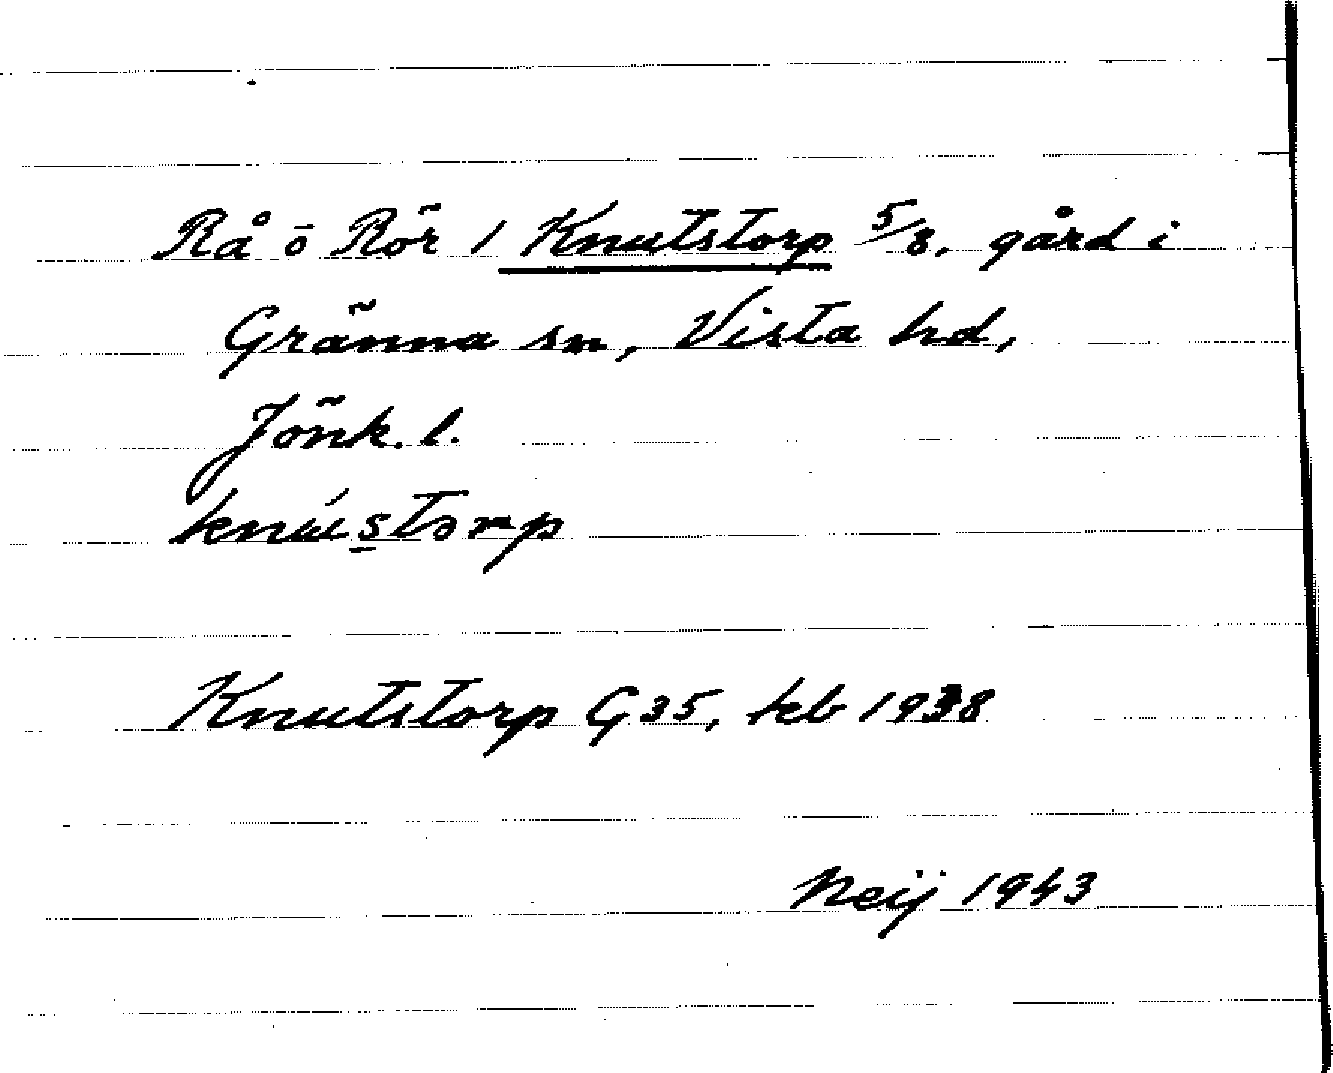 Rå ö Rör 1 Knutstorp 5/8, gård i
Gränna sn, Vista hd,
Jönk. l.
knústorp
Knutstorp G 35, kb 1938
Neij 1943